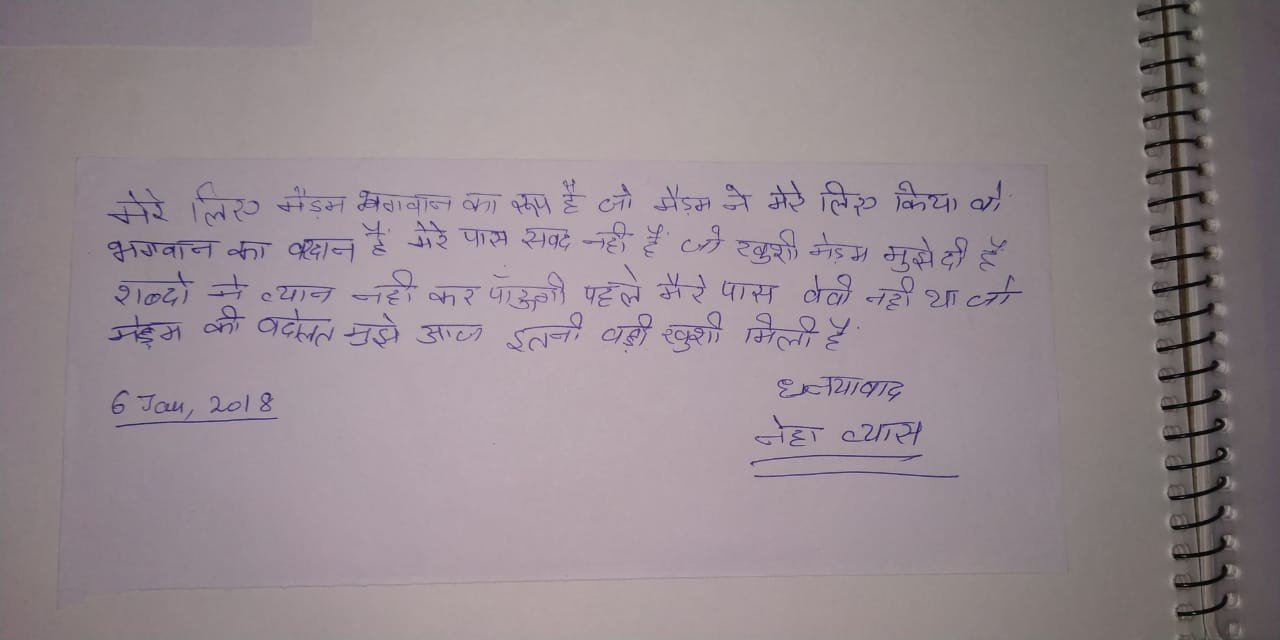 मेरे लिए मैडम भगवान का रूप है जो मैडम ने मेरे लिए किया वो
भगवान का वरदान है मेरे पास सवद नही है जो खुशी मेडम मुझे दी है
शब्दो मे व्यान नही कर पाँऊगी पहले मेरे पास वेवी नही था जो
मेड़म की वदोलत मुझे आज इतनी वड़ी खुशी मिली है
धन्यावाद
6 Jan, 2018
नेहा व्यास